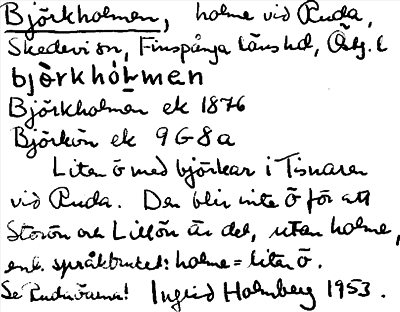 Björkholmen, holme vid Ruda,
Skedevi sn, Finspånga läns hd, Östg. l
bjö̀rkhòlmen
Björkholmen ek 1876
Björkön ek 9G8a
Liten ö med björkar i Tisnaren
vid Ruda. Den blir inte Ö för att
Storön och Lillön är det, utan holme,
enl. språkbruket: holme = liten ö.
Se Rudaöarna! Ingrid Holmberg 1953.